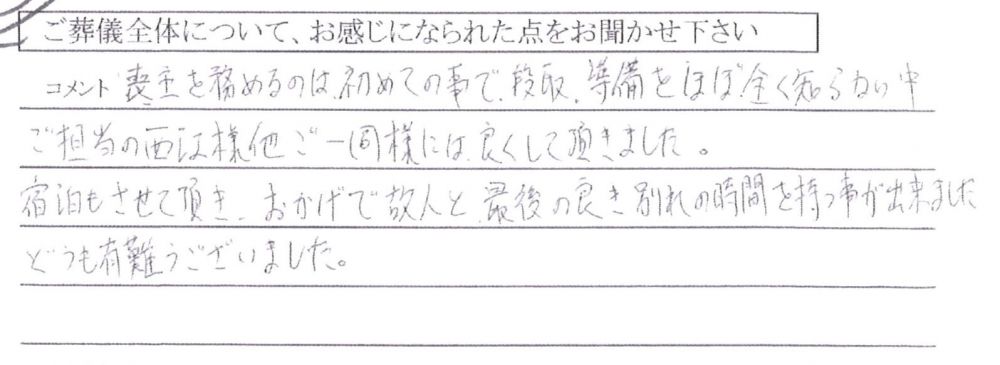 ご葬儀全体について、お感じになられた点をお聞かせ下さい
コメント 喪主を務めるのは、初めての事で、段取、準備をほぼ全く知らない中
ご担当の西は様他ご一同様には良くして頂きました。
宿泊もさせて頂き、おかげで故人と最後の良き別れの時間を持つ事が出来ました
どうも有難うございました。